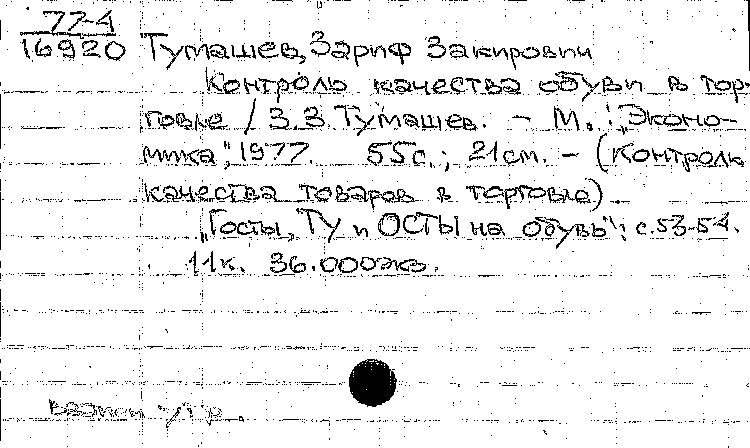 77-4
16920 Тумашев, Зариф Закирович
Контроль качества обуви в тор-
говле / З.З. Тумашев. - М.: „Эконо-
мика", 1977. 55с.; 21см. - (Контроль
качества товаров в торговле).
„Госты, ТУ и ОСТЫ на обувь": с.53-54.
11к. 36.000экз.